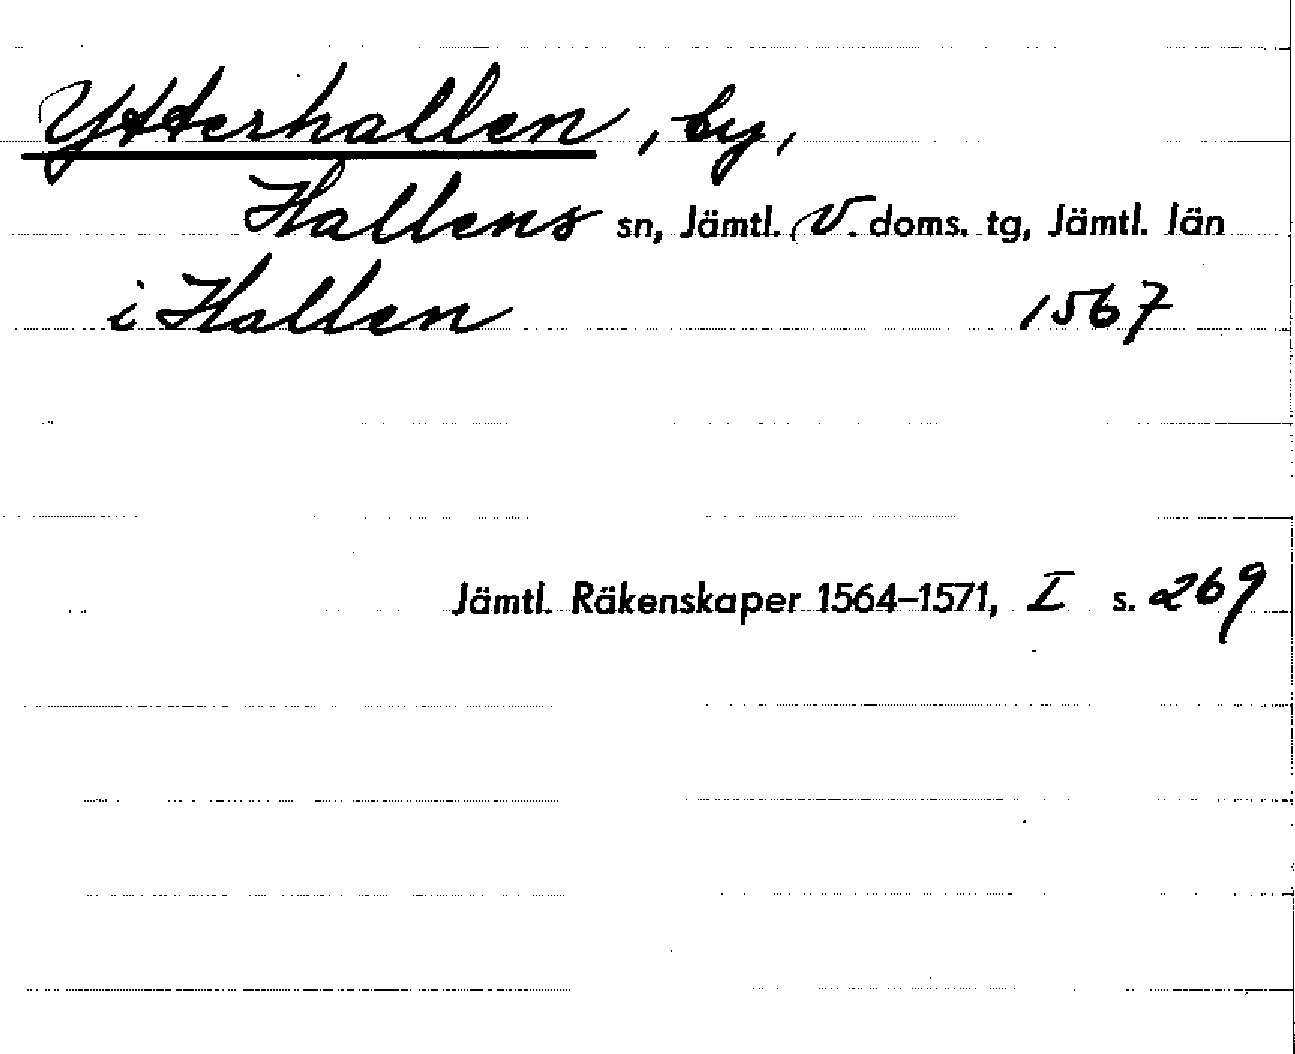 Ytterhallen, by,
Hallens sn, Jämtl. V. doms. tg, Jämtl. län
i Hallen 1567
Jämtl. Räkenskaper 1564–1571, I s. 269